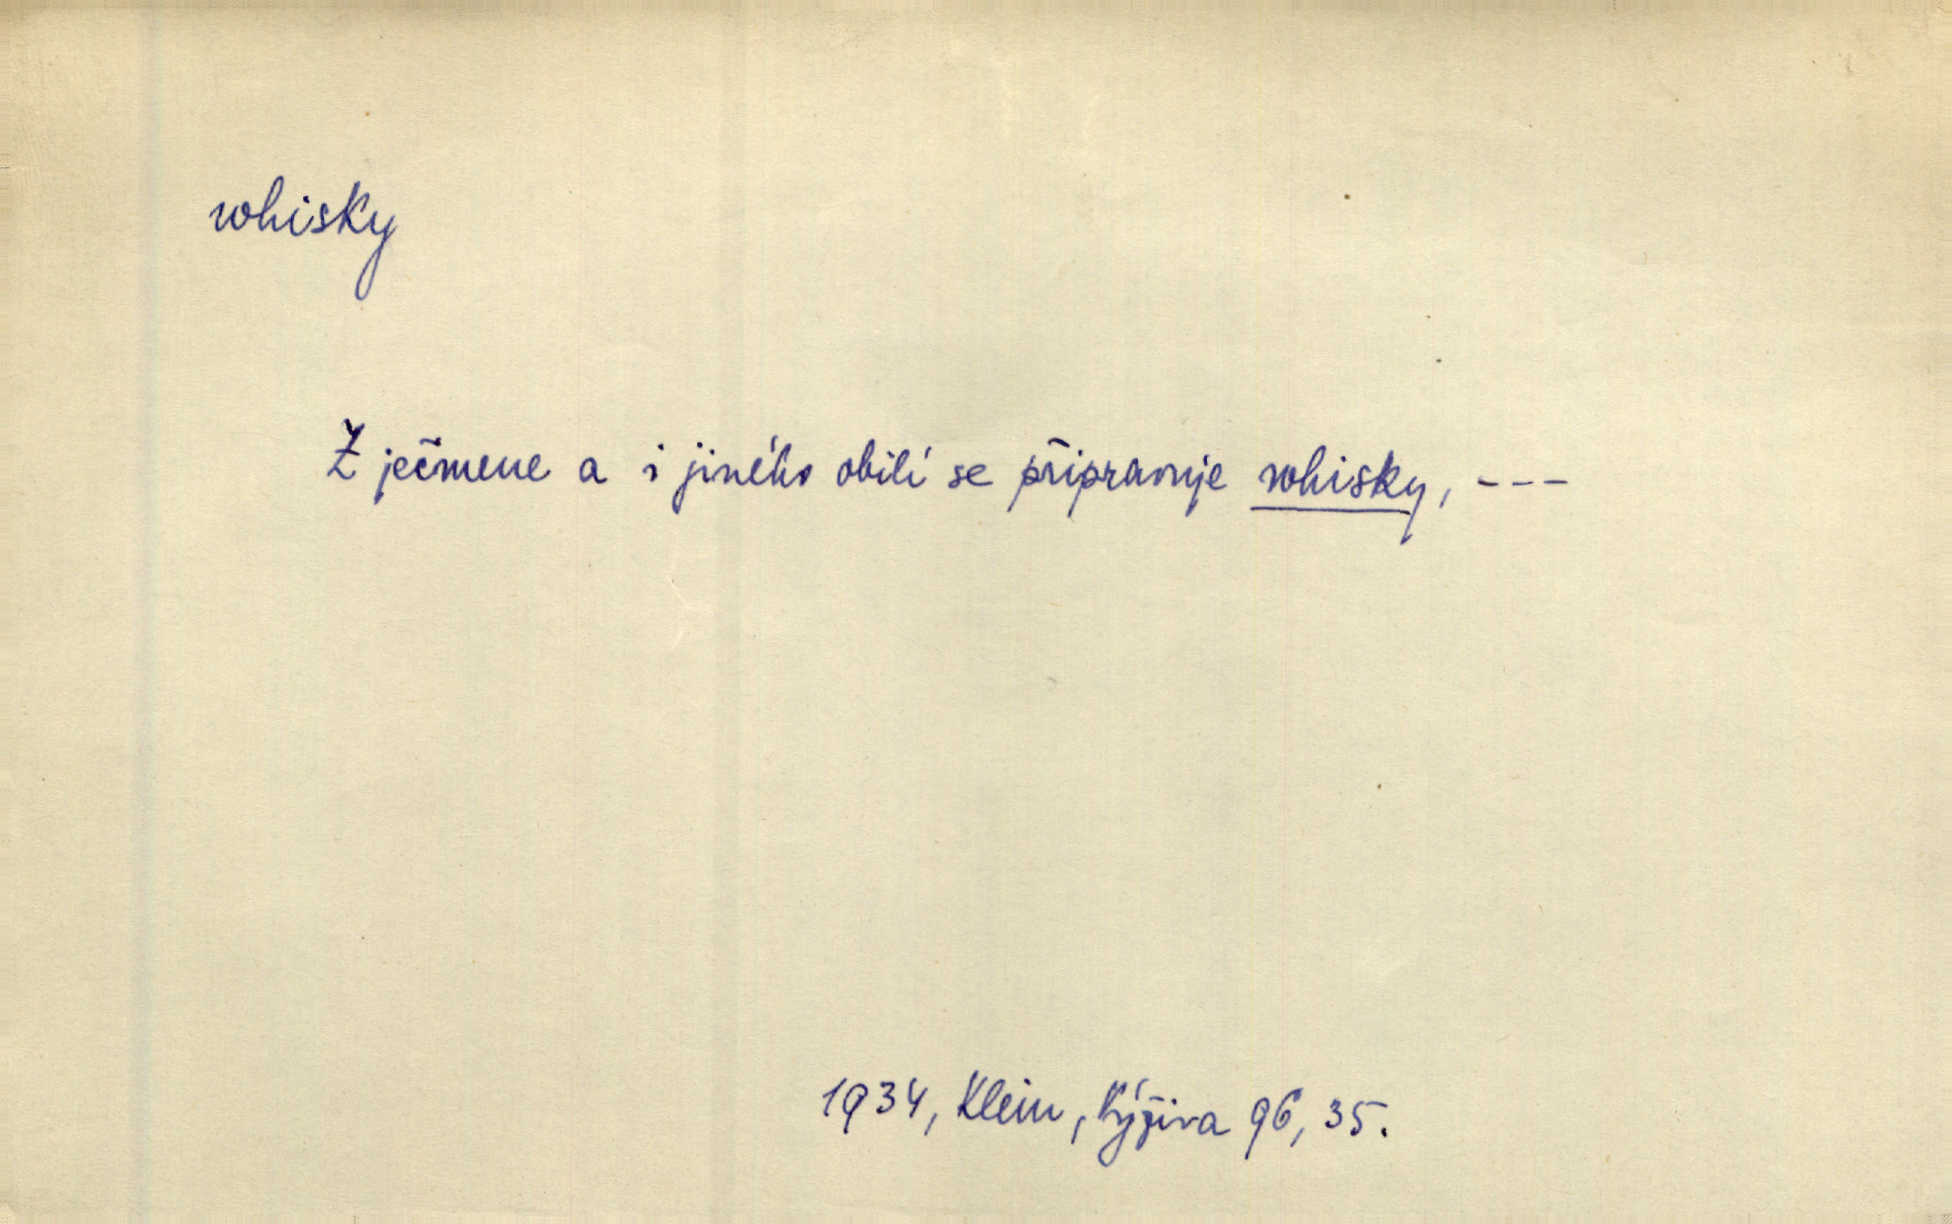 whisky
Z ječmene a i jiného obilí se připravuje whisky, ---
1934, Klein, Výživa 96, 35.